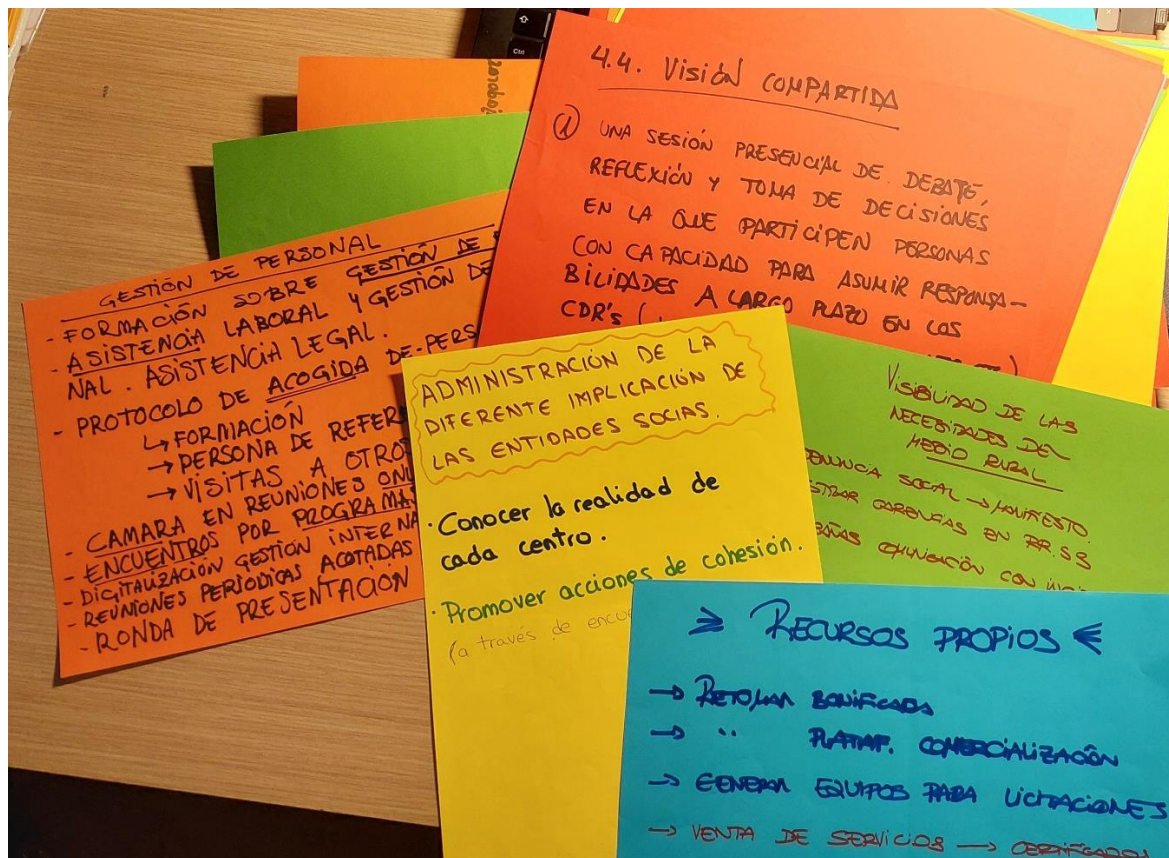 Ctrl
4.4. Visión COMPARTIDA
① UNA SESIÓN PRESENCIAL DE DEBATE,
REFLEXIÓN Y TOMA DE DECISIONES
EN LA QUE PARTICIPEN PERSONAS
CON CAPACIDAD PARA ASUMIR RESPONSA-
BILIDADES A LARGO PLAZO EN LOS
CDR'S (
GESTIÓN DE PERSONAL
- FORMACIÓN SOBRE GESTIÓN DE
- ASISTENCIA LABORAL Y GESTIÓN DE
NAL. ASISTENCIA LEGAL.
- PROTOCOLO DE ACOGIDA DE PERS
↳ FORMACIÓN
→ PERSONA DE REFER
→ VISITAS A OTROS
- CAMARA EN REUNIONES ONL
- ENCUENTROS POR PROGRAMAS
- DIGITALIZACIÓN GESTIÓN INTERNA
- REUNIONES PERIODICAS ACOTADAS
- RONDA DE PRESENTACIÓN
ADMINISTRACIÓN DE LA
DIFERENTE IMPLICACIÓN DE
LAS ENTIDADES SOCIAS.
· Conocer la realidad de
cada centro.
· Promover acciones de cohesión.
(a través de encue
VISIBILIDAD DE LAS
NECESIDADES DEL
MEDIO RURAL
DENUNCIA SOCIAL → MANIFIESTO.
STRAR CARENCIAS EN RR.SS
AÑAS COMUNICACIÓN CON
> RECURSOS PROPIOS <
→ RETOMAR BONIFICADA
→ " PLATAF. COMERCIALIZACIÓN
→ GENERAR EQUIPOS PARA LICITACIONES
→ VENTA DE SERVICIOS → CERTIFICADOS